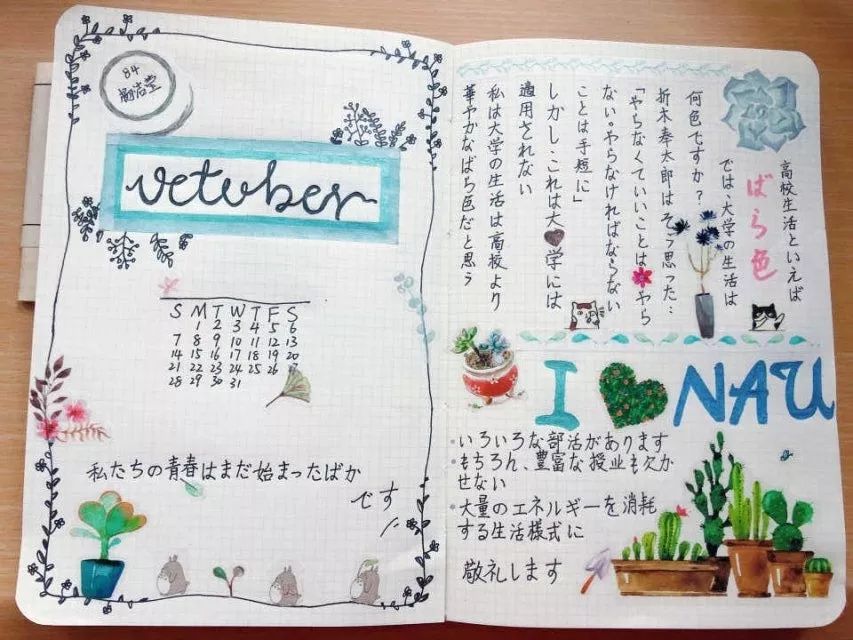 84
October
S M T W T F S
1 2 3 4 5 6
7 8 9 10 11 12 13
14 15 16 17 18 19 20
21 22 23 24 25 26 27
28 29 30 31
私たちの青春はまだ始まったばか
です
高校生活といえば
ばら色
では、大学の生活は
何色ですか?
折木奉太郎はそう思った:
「やらなくていいことはやら
ない。やらなければならない
ことは手短に」
しかし、これは大学には
適用されない
私は大学の生活は高校より
華やかなばら色だと思う
I NAU
・いろいろな部活があります
・もちろん、豊富な授业も欠か
せない
・大量のエネルギーを消耗
する生活様式に
敬礼します